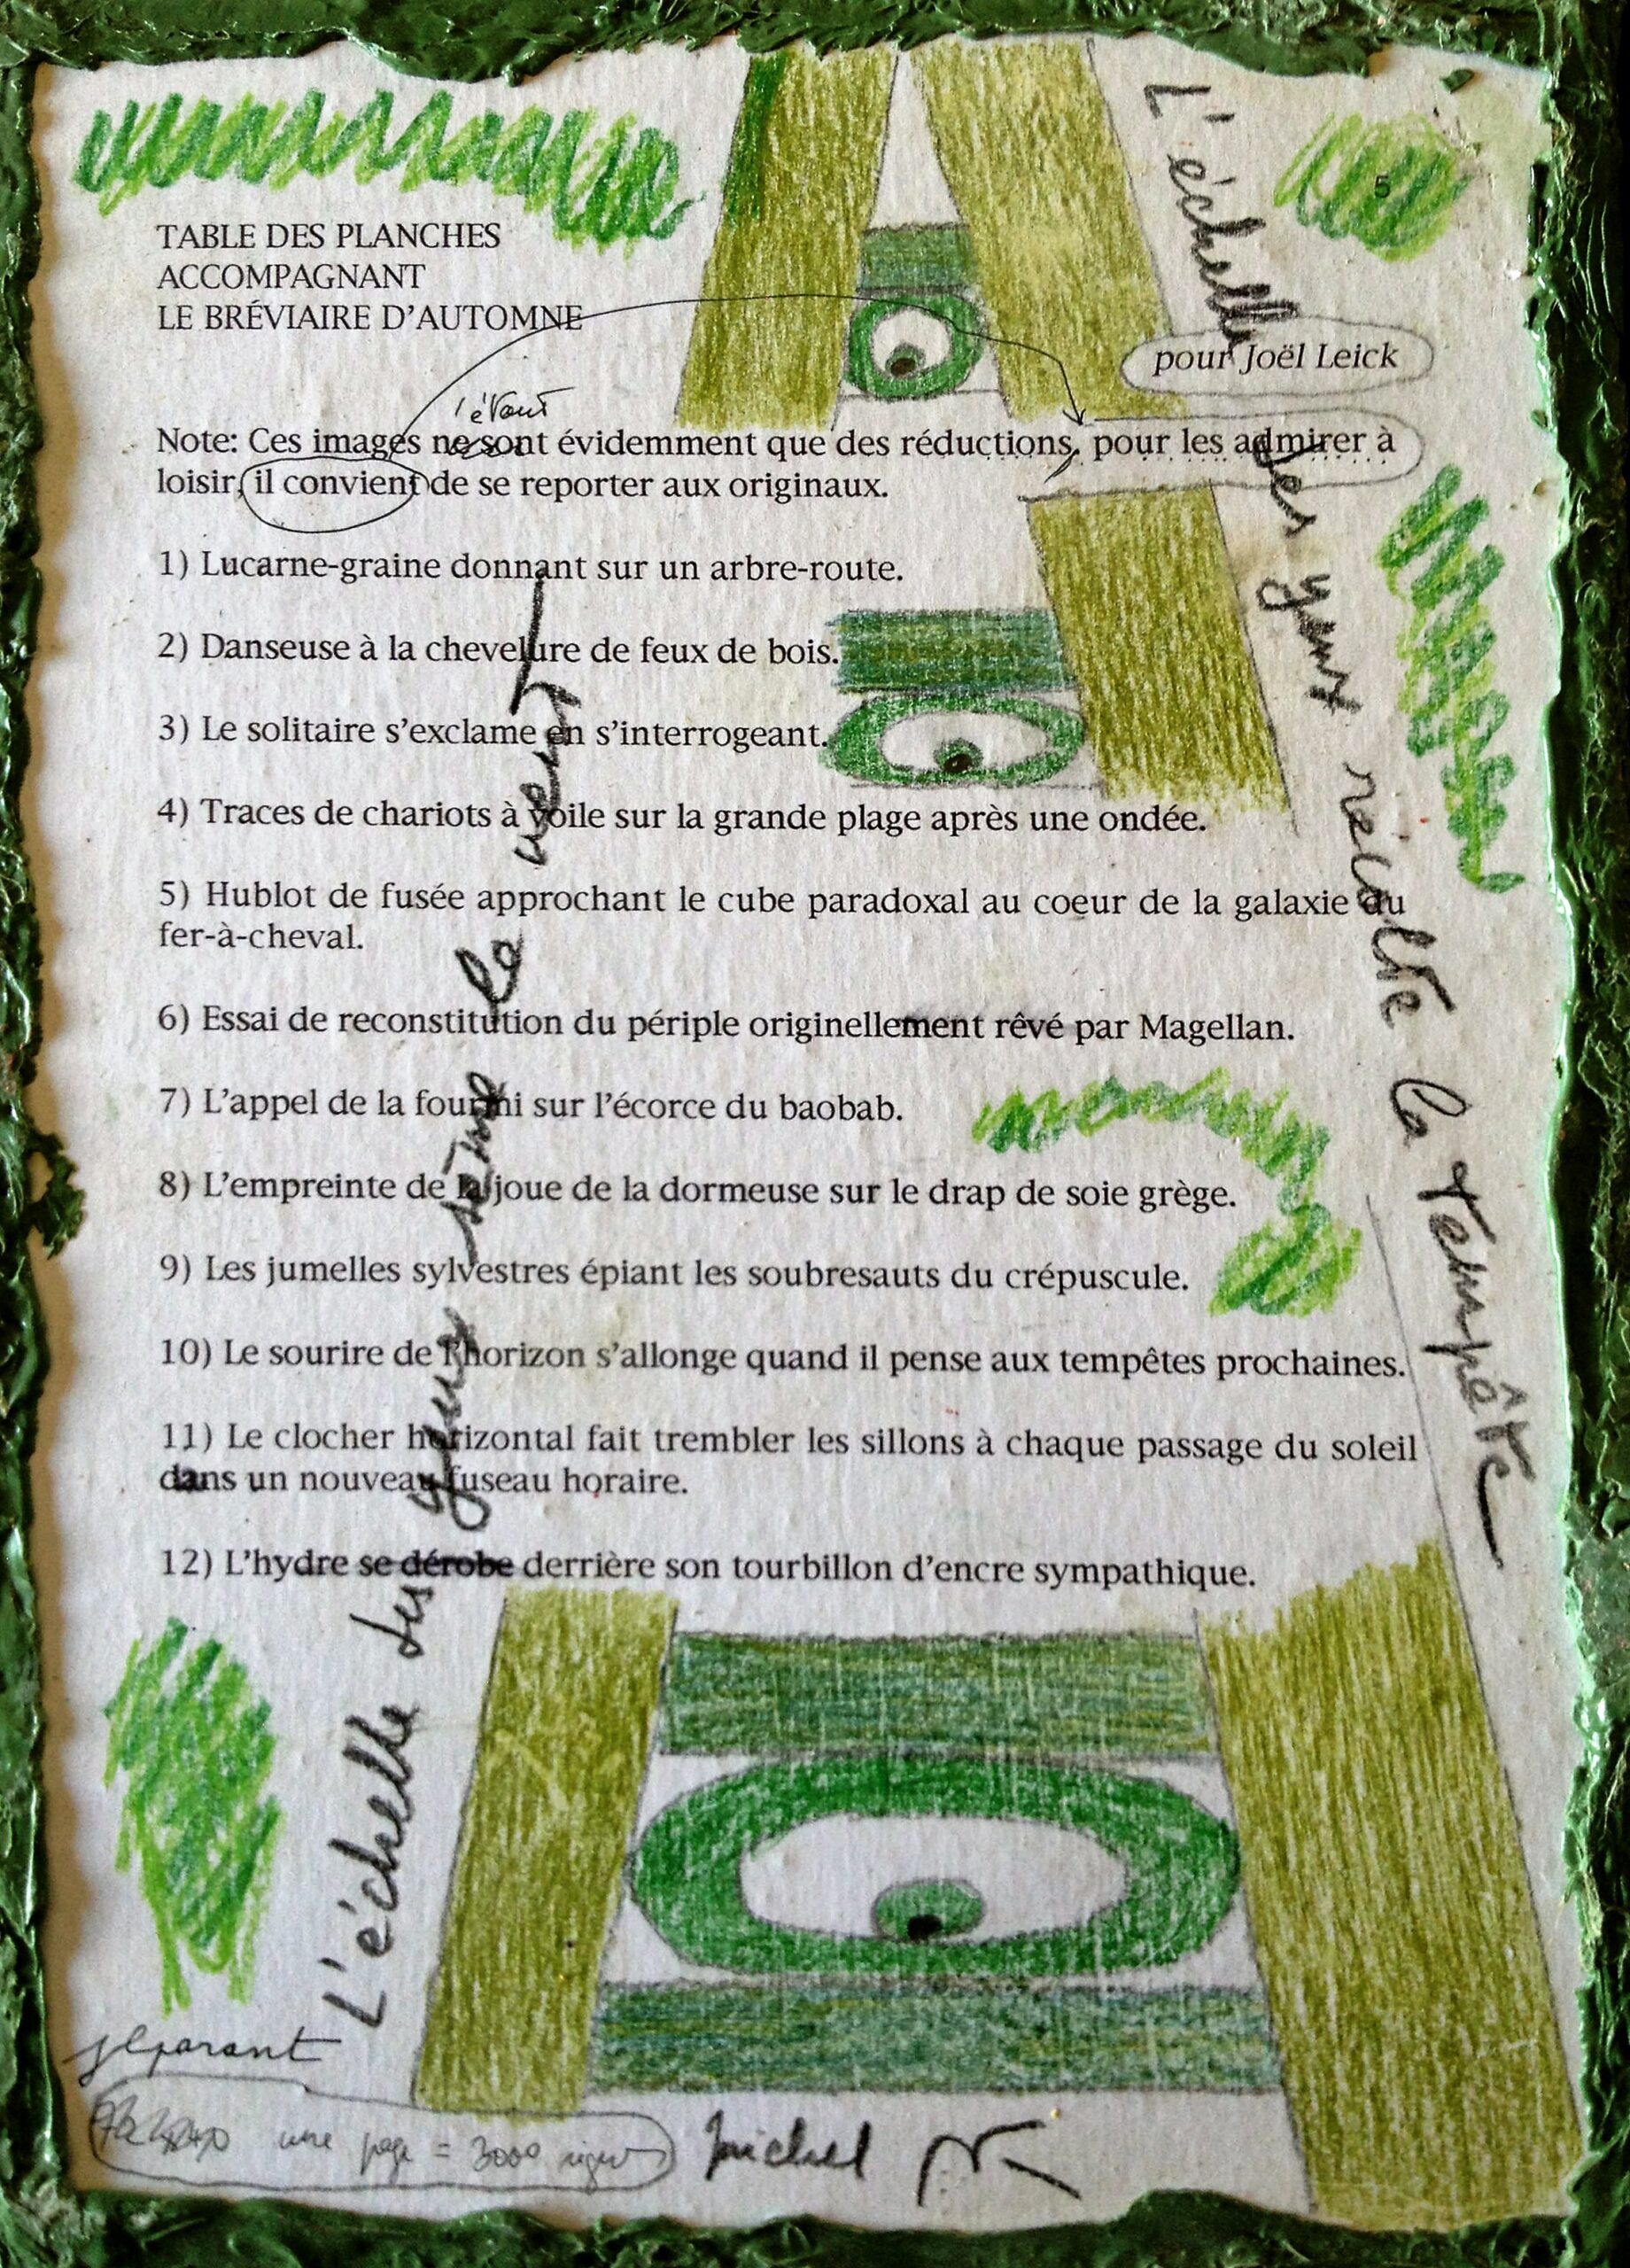 5
TABLE DES PLANCHES
ACCOMPAGNANT
LE BRÉVIAIRE D'AUTOMNE
pour Joël Leick
l'étant
Note: Ces images ne sont évidemment que des réductions, pour les admirer à
loisir, il convient de se reporter aux originaux.
1) Lucarne-graine donnant sur un arbre-route.
2) Danseuse à la chevelure de feux de bois.
3) Le solitaire s'exclame en s'interrogeant.
4) Traces de chariots à voile sur la grande plage après une ondée.
5) Hublot de fusée approchant le cube paradoxal au coeur de la galaxie du
fer-à-cheval.
6) Essai de reconstitution du périple originellement rêvé par Magellan.
7) L'appel de la fourmi sur l'écorce du baobab.
8) L'empreinte de la joue de la dormeuse sur le drap de soie grège.
9) Les jumelles sylvestres épiant les soubresauts du crépuscule.
10) Le sourire de l'horizon s'allonge quand il pense aux tempêtes prochaines.
11) Le clocher horizontal fait trembler les sillons à chaque passage du soleil
dans un nouveau fuseau horaire.
12) L'hydre se dérobe derrière son tourbillon d'encre sympathique.
L'échelle des yeux sème le vent
L'échelle des yeux récolte la tempête
jlparant
une page = 3000 signes
Michel